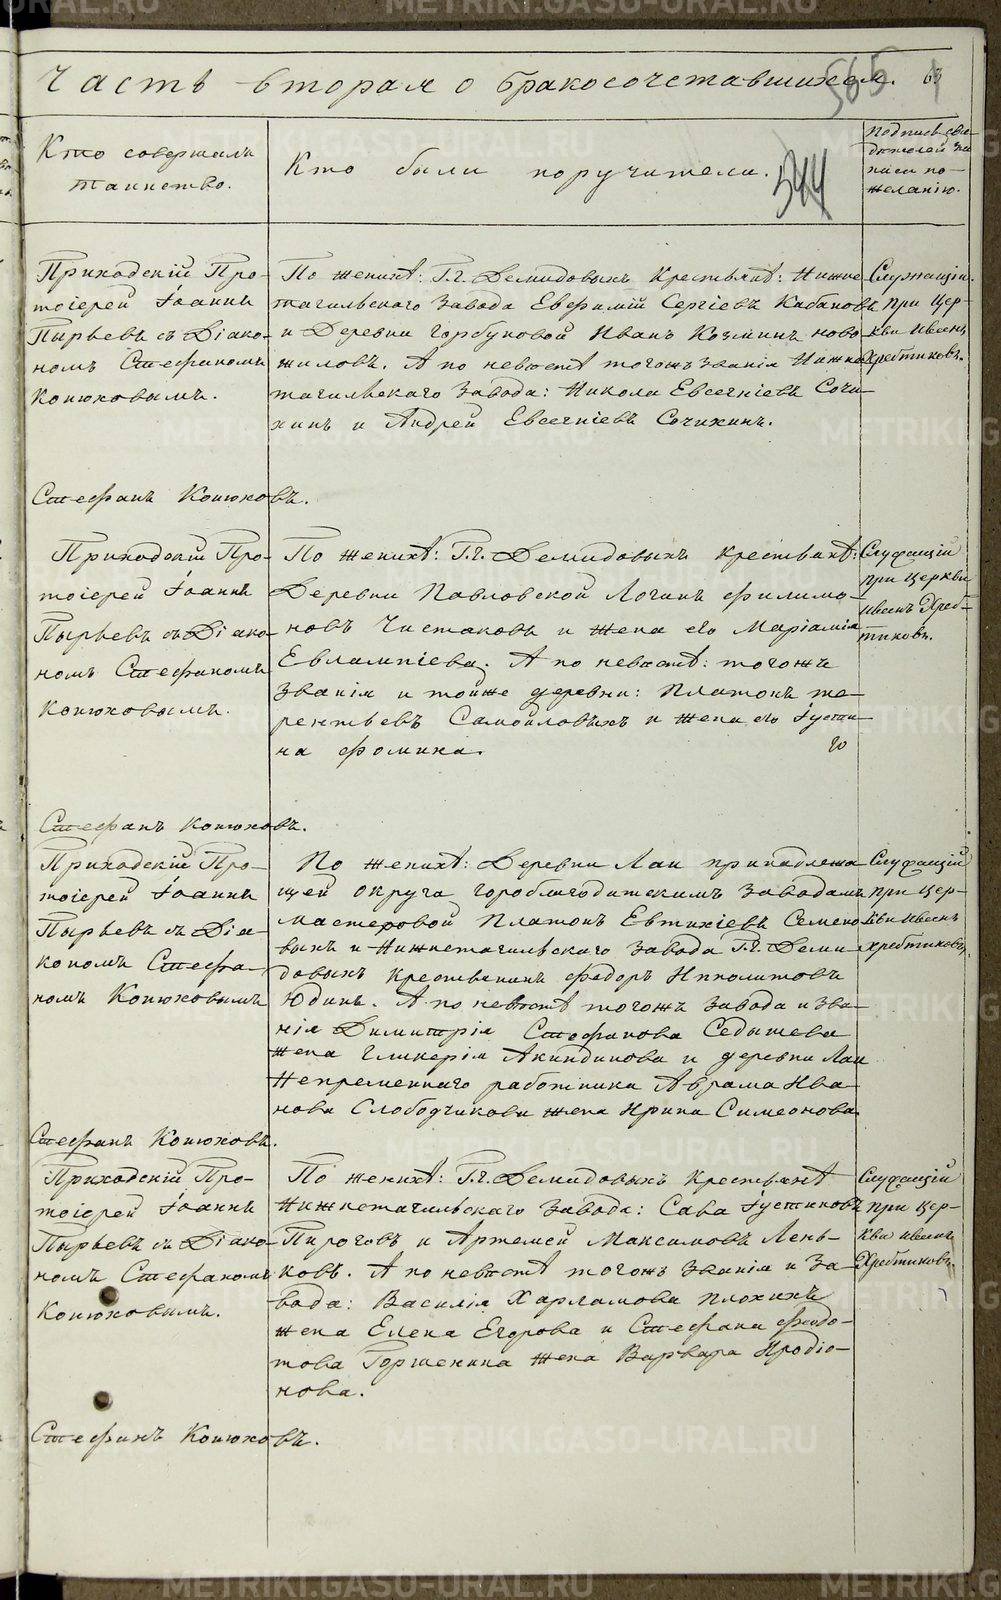 Часть вторая о бракосочетавшихся.
565
63
544
Кто совершалъ
таинство.
Кто были поручители.
Подпись сви-
дѣтелей за
писи по-
желанію.
Приходскій Про-
тоіерей Іоаннъ
Пырьевъ съ Діако-
номъ Стефаномъ
Конюховымъ.
По женихѣ: Г.г. Демидовыхъ Крестьянѣ: Нижне
тагильскаго Завода Евфимій Сергіевъ Кабановъ
и Деревни Горбуновой Иванъ Козминъ Ново
жиловъ. А по невѣстѣ тогожъ званія Нижне
тагильскаго Завода: Никола Евсегніевъ Сочи
хинъ и Андрей Евсегніевъ Сочихинъ.
Служащій
при Цер-
кви Ивенъ
Хребтиковъ.
Стефанъ Конюховъ.
Приходскій Про-
тоіерей Іоаннъ
Пырьевъ съ Діако-
номъ Стефаномъ
Конюховымъ.
По женихѣ: Г.г. Демидовыхъ Крестьянѣ:
Деревни Павловской Логинъ Филимо-
новъ Чистяковъ и жена его Маріамія
Евлампіева. А по невѣстѣ: тогожъ
званія и тойже деревни: Платонъ те-
рентьевъ Самойловыхъ и жена его Іусти
на Фомина.
Служащій
при церкви
Ивенъ Хреб-
тиковъ.
Стефанъ Конюховъ.
Приходскій Про-
тоіерей Іоаннъ
Пырьевъ съ Діа-
кономъ Стефа-
номъ Конюховымъ
По женихѣ: Деревни Лаи принадлежа
щей округа Гороблагодатскимъ Заводамъ
мастеровой Платонъ Евтихіевъ Семено
выхъ и Нижнетагильскаго Завода Г.г. Деми
довыхъ Крестьянинъ Федоръ Ипполитовъ
Юдинъ. А по невѣстѣ тогожъ Завода и зва-
нія Димитрія Стефанова Седышева
жена Гликерія Акиндинова и деревни Лаи
Непременнаго работника Абрама Ива-
нова Слободчикова жена Ирина Симеонова.
Служащій
при Цер-
кви Ивенъ
Хребтиковъ.
Стефанъ Конюховъ.
Приходскій Про-
тоіерей Іоаннъ
Пырьевъ съ Діако-
номъ Стефаномъ
Конюховымъ.
По женихѣ: Г.г. Демидовыхъ Крестьянѣ
Нижнетагильскаго Завода: Сава Іустиновъ
Пироговъ и Артемей Максимовъ Лень-
ковъ. А по невѣстѣ тогожъ Званія и За-
вода: Василія Харламова Плохихъ
жена Елена Егорова и Стефана Федо-
това Горшенина жена Варвара Иродіо-
нова.
Служащій
при Цер-
кви Ивенъ
Хребтиковъ.
Стефанъ Конюховъ.
METRIKI.GASO-URAL.RU